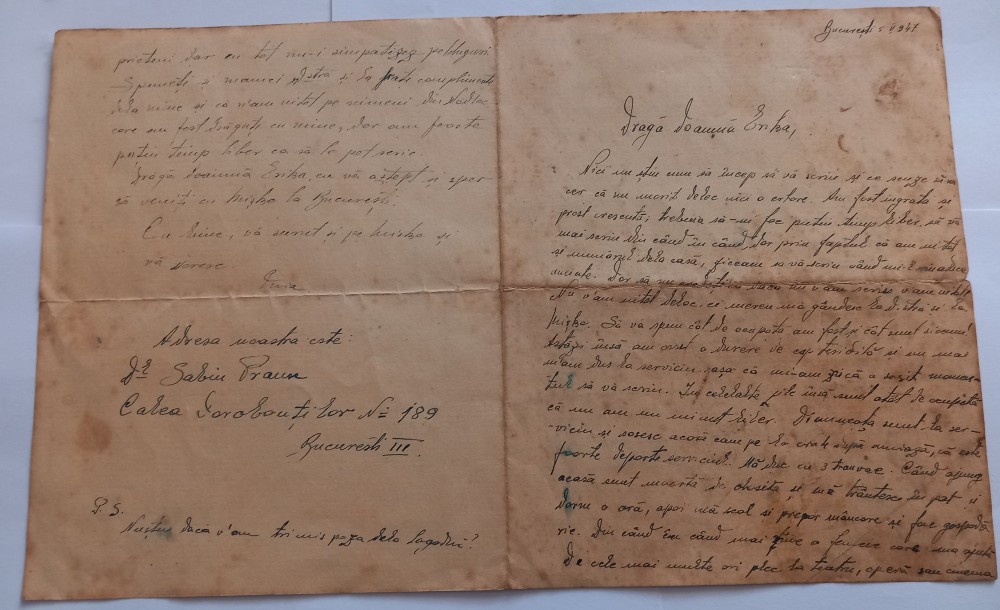 București 5 V 941
Dragă Doamnă Erika,
Nici nu știu cum să încep să vă scriu și ce scuze să vă
cer că nu merit deloc nici o ertare. Am fost ingrată și
prost crescută; trebuia să-mi fac puțin timp liber, să vă
mai scriu din când în când, dar prin faptul că am uitat
și numărul dela casă, ziceam să vă scriu când mi-l voi aduce
aminte. Dar să nu credeți că daca nu v'am scris v'am uitat
Nu v'am uitat deloc, ci mereu mă gândesc la Dstra și la
Mișko. Să vă spun cât de ocupată am fost și cât sunt și acum!
Astăzi însă am avut o durere de cap teribilă și nu mai
m'am dus la serviciu, așa că mi-am zică a sosit momen-
tul să vă scriu. In celelalte zile însă sunt atât de ocupată
că nu am un minut liber. Dimineața sunt la ser-
viciu și sosesc acasă cam pe la după amiază, că este
foarte departe serviciul. Mă duc cu 3 tranvae. Când ajung
acasă sunt moartă de obosită și mă trântesc în pat și
dorm o oră, apoi mă scol și prepar mâncare și fac gospodă
rie. Din când în când mai vine o femee care mă ajută
De cele mai multe ori plec la teatru, operă sau cinema
prieteni dar eu tot nu-i simpatizez pe bulgari.
Spuneți și mamei Dstra și la frați complimente
dela mine și că n'am uitat pe nimeni din Nadlac
care au fost drăguți cu mine, dar am foarte
puțin timp liber ca să le pot scrie.
Dragă Doamnă Erika, eu vă aștept și sper
să veniți cu Mișko la București.
Cu bine, vă sărut și pe Mișko și
vă doresc.
Adresa noastra este:
Dr Sabin
Calea Dorobanților No 189
București III.
P. S.
Nu știu daca v'am trimis poza dela Logodnă?